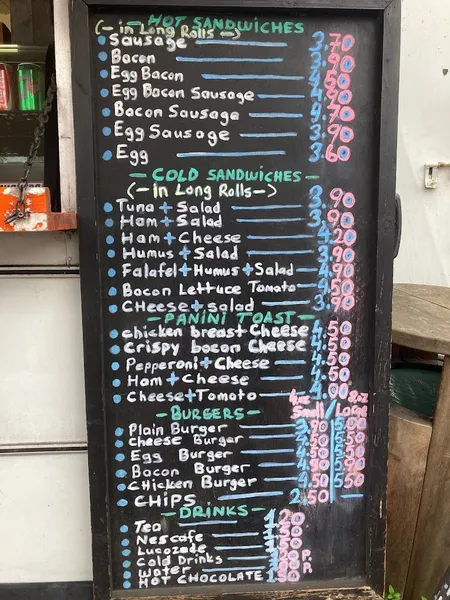 - HOT SANDWICHES
(- in Long Rolls -)
Sausage 3.70
Bacon 3.90
Egg Bacon 4.50
Egg Bacon Sausage
Bacon Sausage 4.70
Egg Sausage 3.90
Egg 3.60
- COLD SANDWICHES -
(- in Long Rolls -)
Tuna + Salad 3.90
Ham + Salad 3.90
Ham + Cheese 4.20
Humus + Salad 3.90
Falafel + Humus + Salad 4.90
Bacon Lettuce Tomato 4.50
CHeese + salad 3.90
- PANINI TOAST -
chicken breast Cheese 4.50
Crispy bacon Cheese 4.50
Pepperoni + Cheese 4.50
Ham + Cheese 4.50
Cheese + Tomato 4.00
- BURGERS - Small / Large
Plain Burger 3.90
cheese Burger
Egg Burger 4.50
Bacon Burger 4.90
CHicken Burger 4.50 5.50
CHIPS 2.50 —
- DRINKS -
Tea 1.20
Nescafe
Lucozade
Cold Drinks
water
HOT CHOCOLATE 1.50